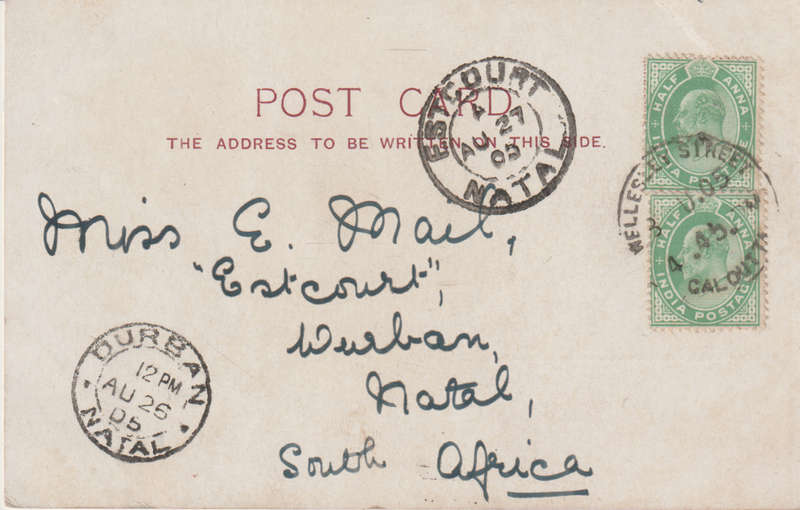 POST CARD
THE ADDRESS TO BE WRITTEN ON THIS SIDE.
ESTCOURT
A
AU 27
05
NATAL
HALF ANNA
INDIA POSTAGE
HALF ANNA
INDIA POSTAGE
WELLESLEY STREET
CALCUTTA
Miss E. Mail,
"Estcourt",
Durban,
Natal,
South Africa
DURBAN
12 PM
AU 26
05
NATAL